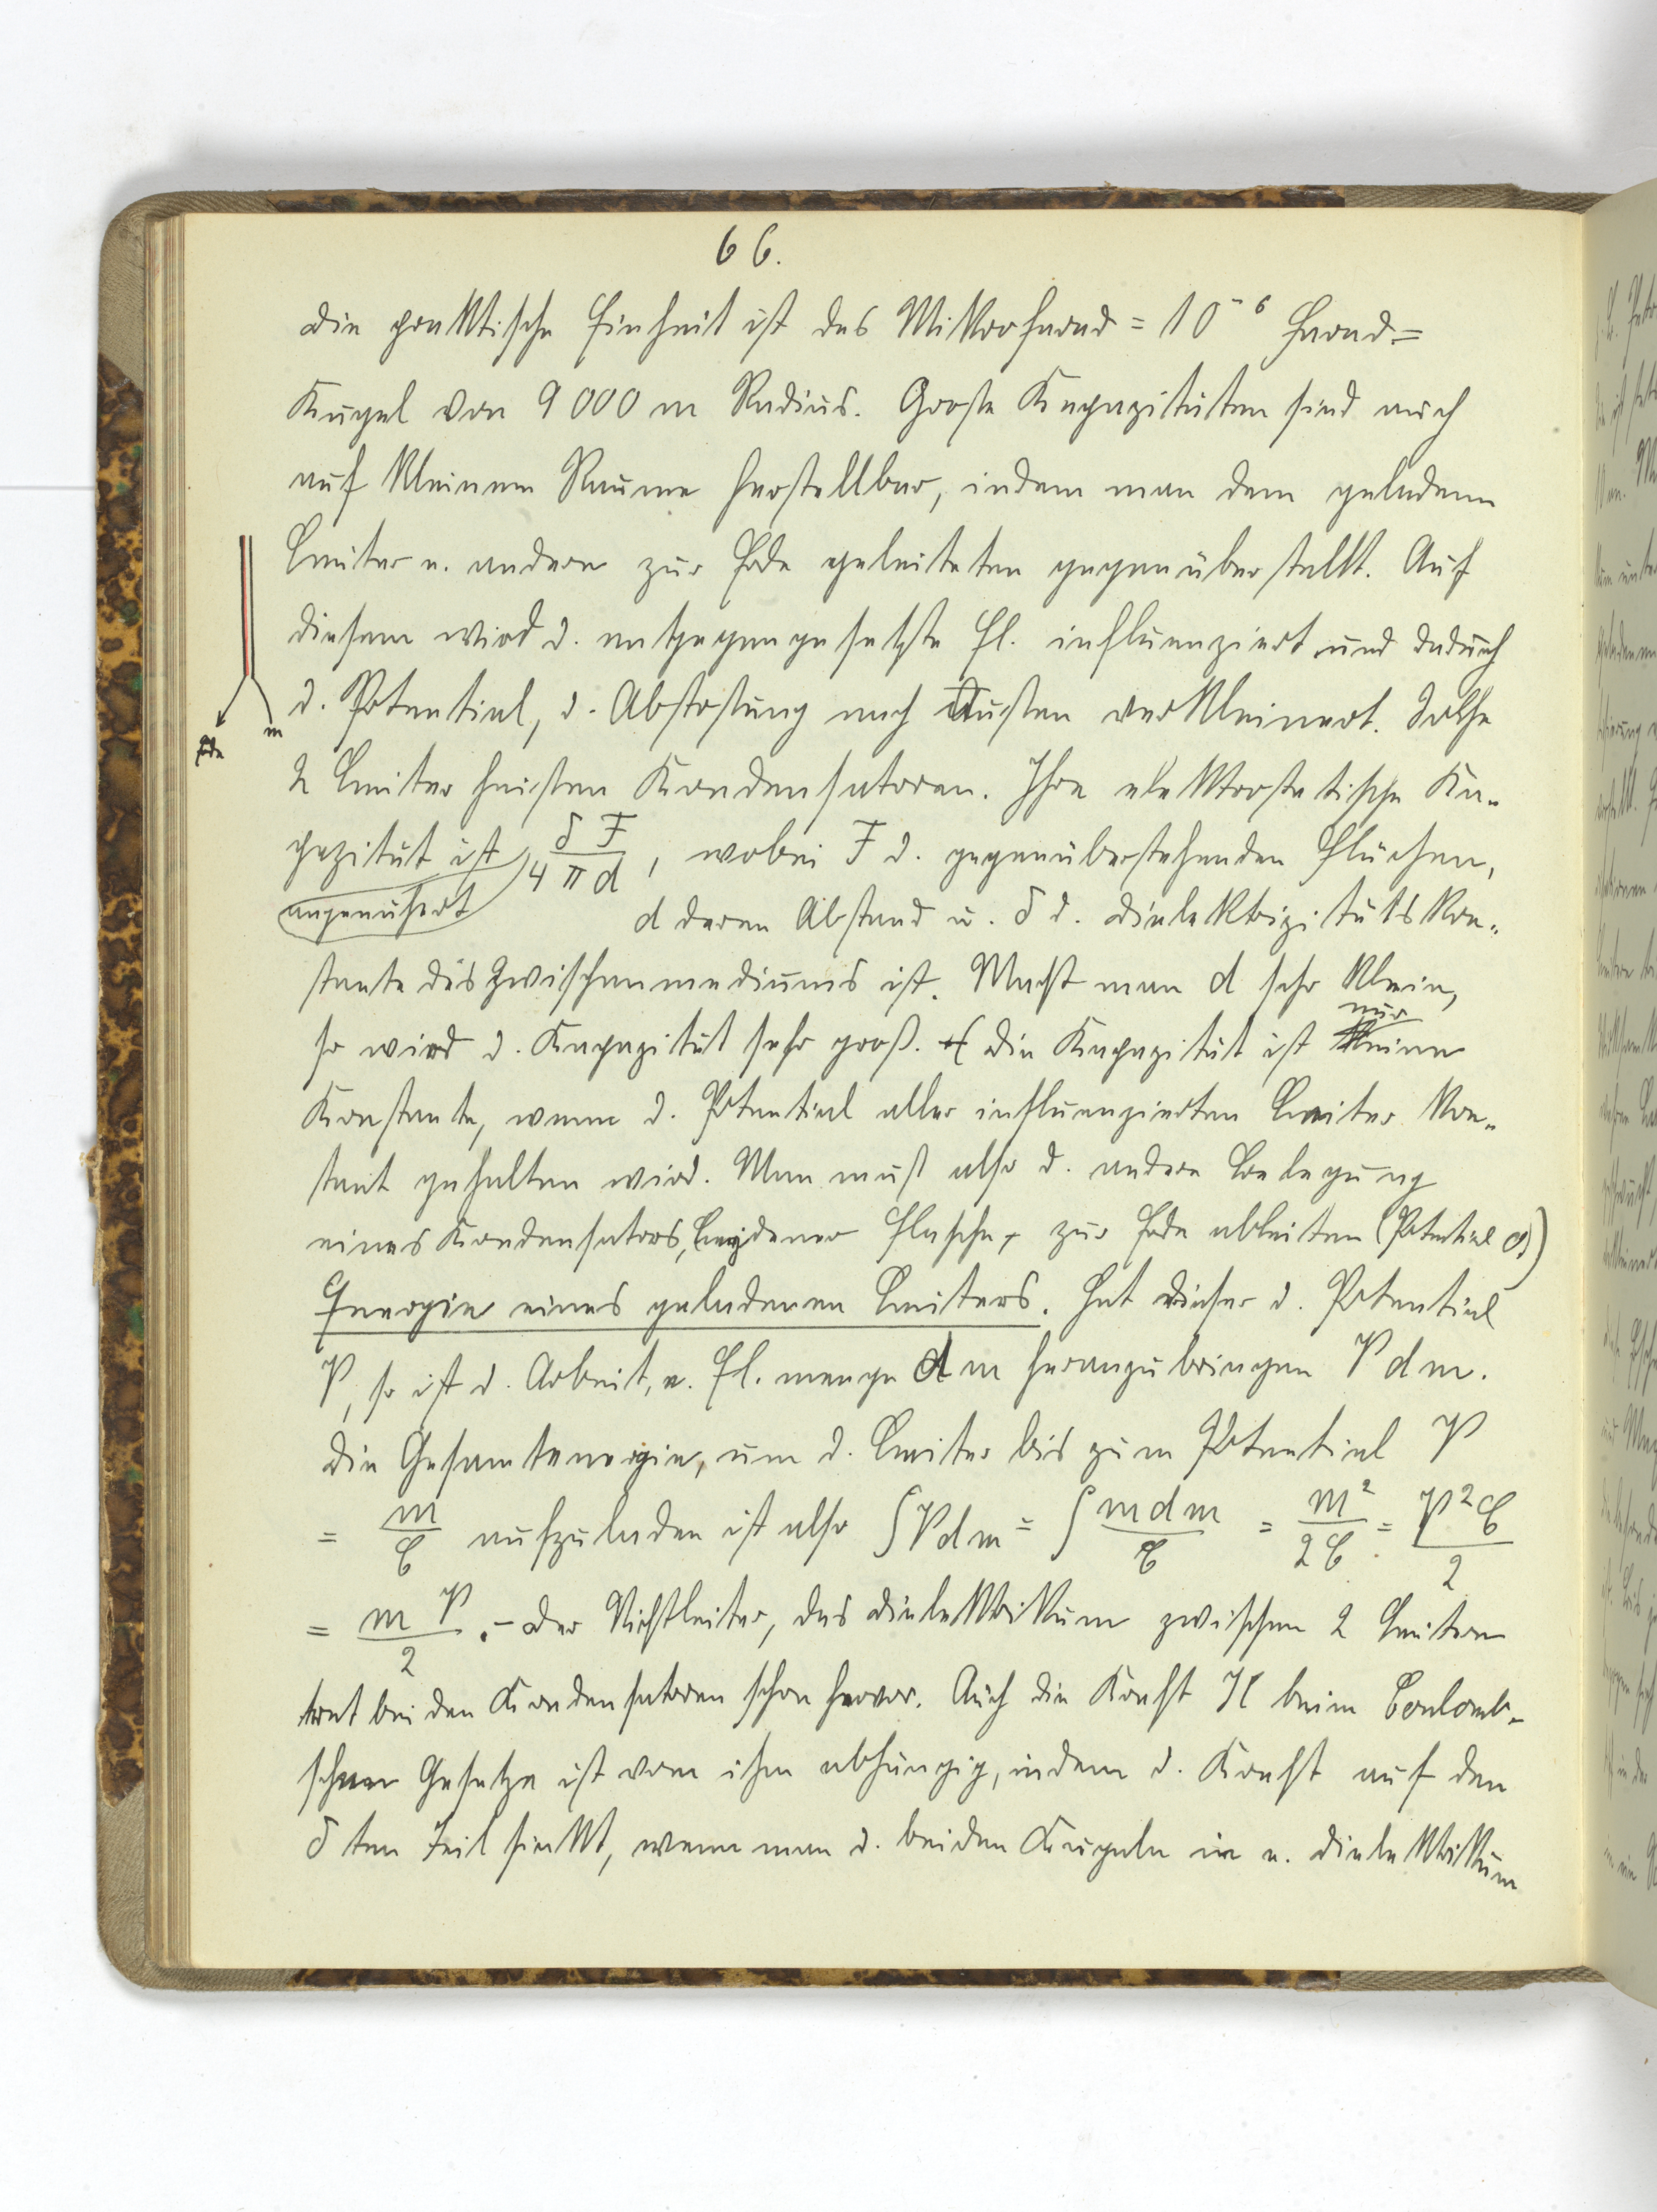 66.
Die praktische Einheit ist das Mikrofarad = 10⁻⁶ Farad =
Kugel von 9000 m Radius. Große Kapazitäten sind auch
auf kleinem Raume herstellbar, indem man dem geladenen
Leiter e. andern zur Erde geleiteten gegenüberstellt. Auf
diesem wird d. entgegengesetzte El. influenziert und dadurch
d. Potential, d. Abstoßung nach Außen verkleinert. Solche
Erde m
2 Leiter heißen Kondensatoren. Ihre elektrostatische Ka-
pazität ist δF/4πd, wobei F d. gegenüberstehenden Flächen,
angenähert
d deren Abstand u. δ d. Dielektrizitätskon-
stante des Zwischenmediums ist. Macht man d sehr klein,
so wird d. Kapazität sehr groß. Die Kapazität ist nur eine
Konstante, wenn d. Potential aller influenzierten Leiter kon-
stant gehalten wird. Man muß also d. andere Belegung
eines Kondensators, Leydener Flasche, zur Erde ableiten (Potential 0)
Energie eines geladenen Leiters. Hat dieser d. Potential
V, so ist d. Arbeit, e. El. menge dm heranzubringen V dm.
Die Gesamtenergie, um d. Leiter bis zum Potential V
= m/C aufzuladen ist also ∫Vdm = ∫mdm/C = m²/2C = V²C/2
= mV/2. – Der Nichtleiter, das Dielektrikum zwischen 2 Leitern
trat bei den Kondensatoren schon hervor. Auch die Kraft K beim Coulomb-
schen Gesetze ist von ihm abhängig, indem d. Kraft auf den
δ ten Teil sinkt, wenn man d. beiden Kugeln in e. Dielektrikum